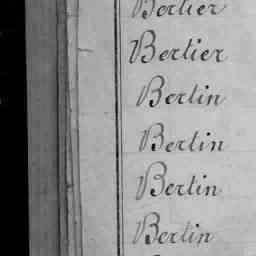 Bertier
Bertier
Bertin
Bertin
Bertin
Bertin